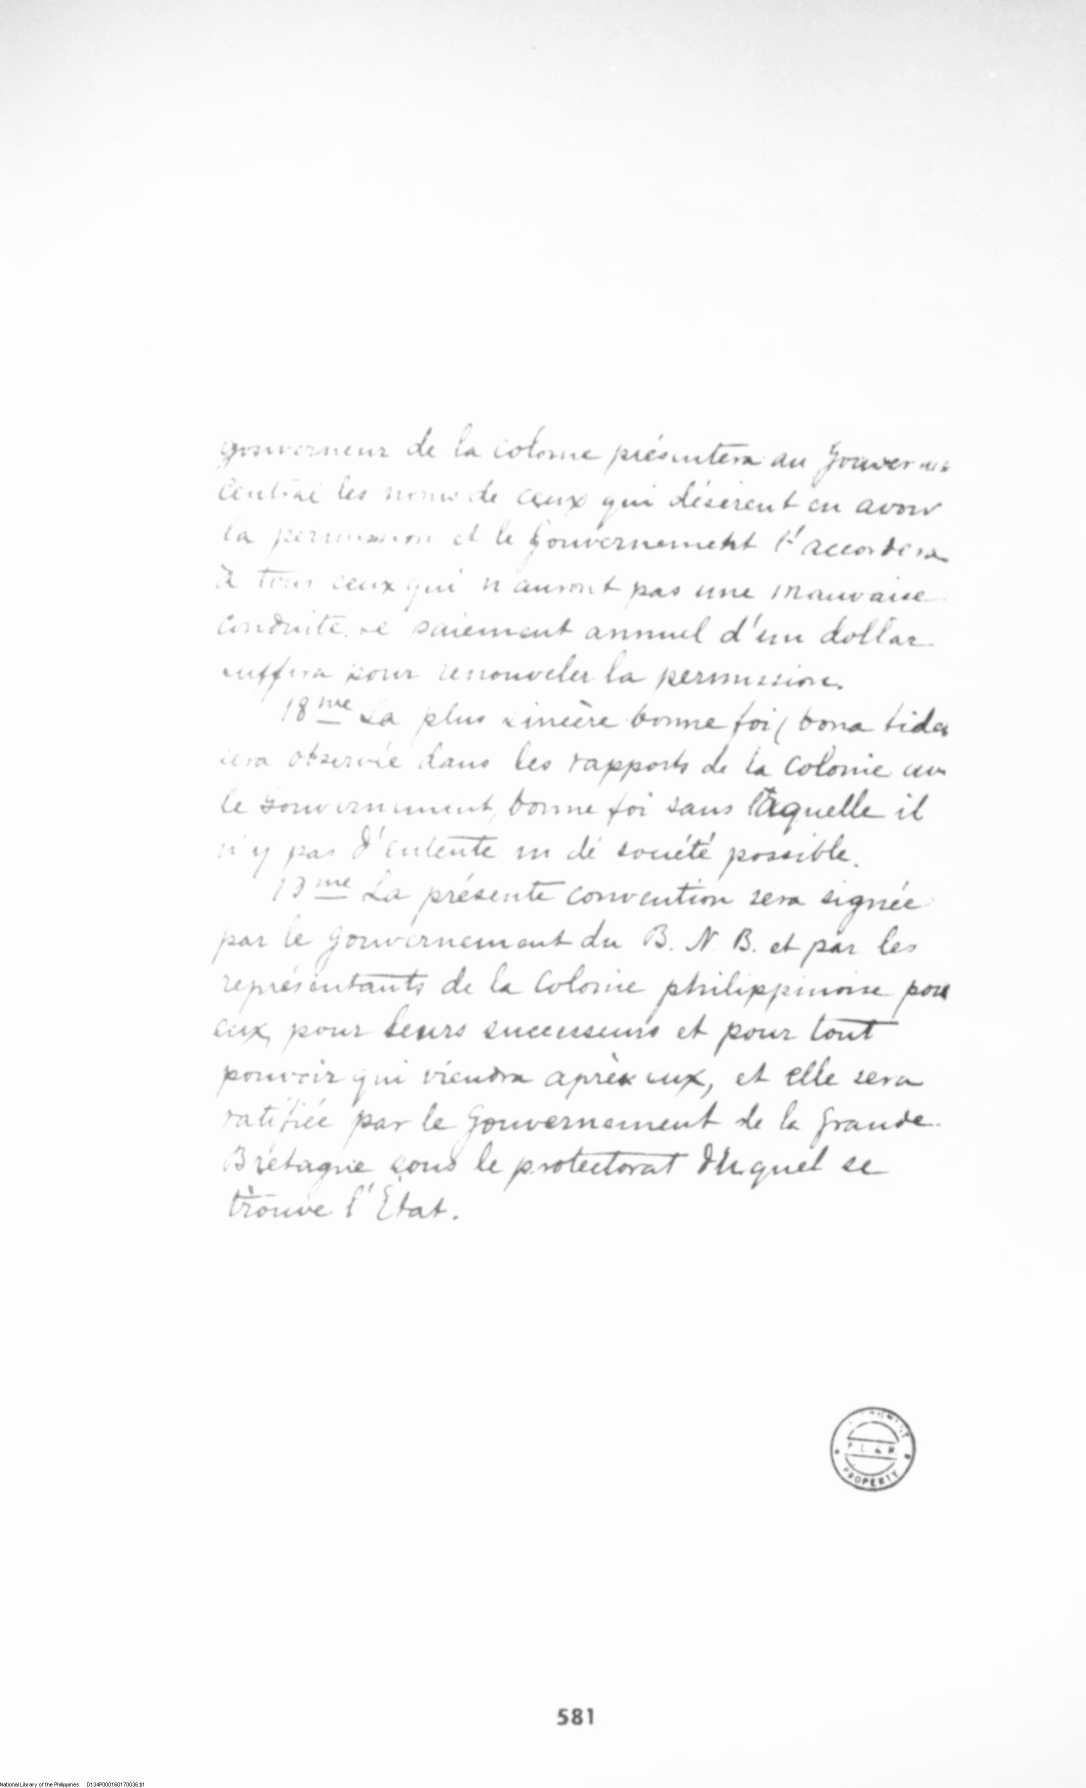 gouverneur de la colonie présentera au Gouvernem
Central les noms de ceux qui désirent en avoir
la permission et le Gouvernement l'accordera
à tous ceux qui n'auront pas une mauvaise
conduite. Le paiement annuel d'un dollar
suffira pour renouveler la permission.
18me La plus sincère bonne foi (bona fides
sera observée dans les rapports de la Colonie av
le Gouvernement, bonne foi sans laquelle il
n'y pas d'entente ni de société possible.
19me La présente convention sera signée
par le Gouvernement du B. N. B. et par les
représentants de la Colonie philippinoise pour
eux, pour leurs successeurs et pour tout
pouvoir qui viendra après eux, et elle sera
ratifiée par le Gouvernement de la Grande
Bretagne sous le protectorat duquel se
trouve l'État.
PROPERTY
581
National Library of the Philippines